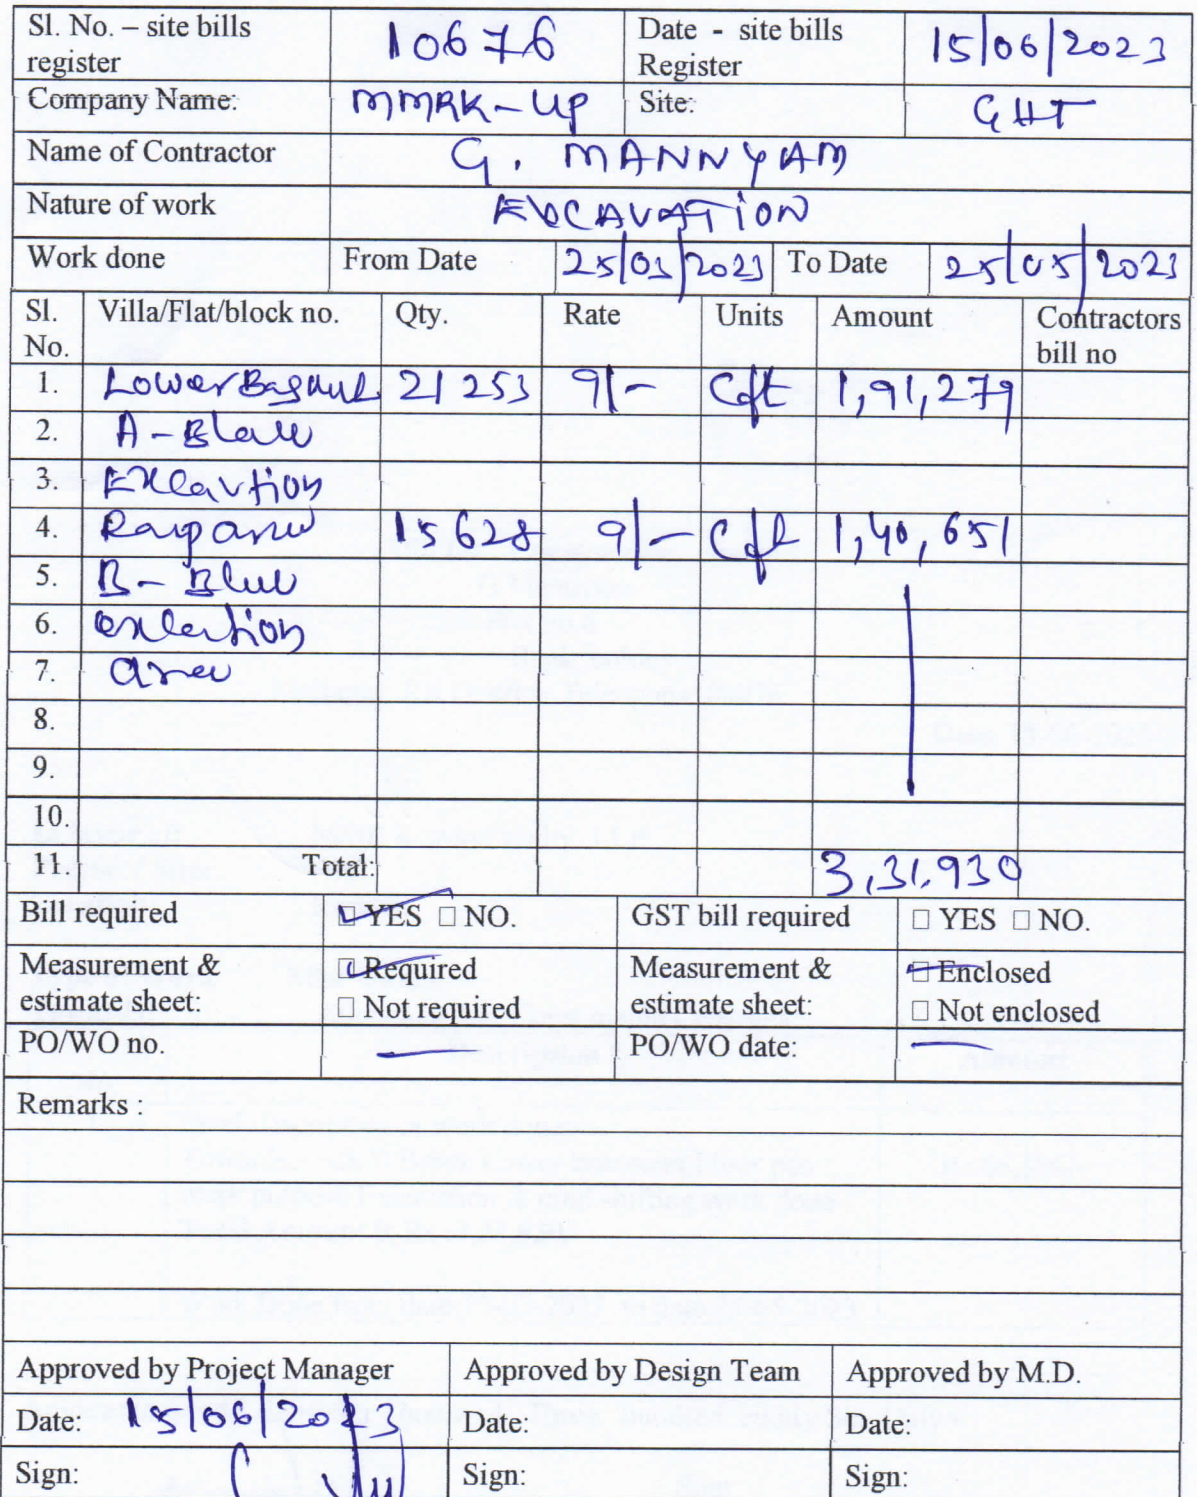 Sl. No. – site bills register 10676 Date - site bills Register 15/06/2023
Company Name: MMRK-UP Site: GHT
Name of Contractor G. MANNYAM
Nature of work EXCAVATION
Work done From Date 25/03/2023 To Date 25/05/2023
Sl. No. Villa/Flat/block no. Qty. Rate Units Amount Contractors bill no
1. Lower 21253 9/- Cft 1,91,279
2. A-
3.
4. 15628 9/- Cft 1,40,651
5. B-
6.
7. area
8.
9.
10.
11. Total: 3,31,930
Bill required □ YES □ NO. GST bill required □ YES □ NO.
Measurement & estimate sheet: □ Required □ Not required Measurement & estimate sheet: □ Enclosed □ Not enclosed
PO/WO no. — PO/WO date: —
Remarks :
Approved by Project Manager Approved by Design Team Approved by M.D.
Date: 15/06/2023 Date: Date:
Sign: Sign: Sign: